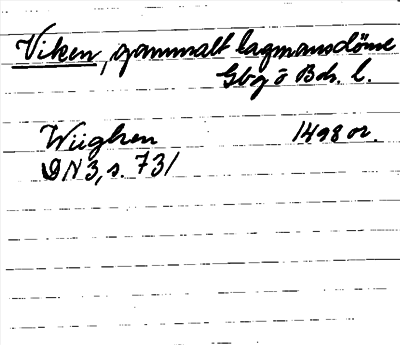 Viken, gammalt lagmansdöme
Gbg o Boh. l.
Wiighen 1498 or.
DN 3, s. 731